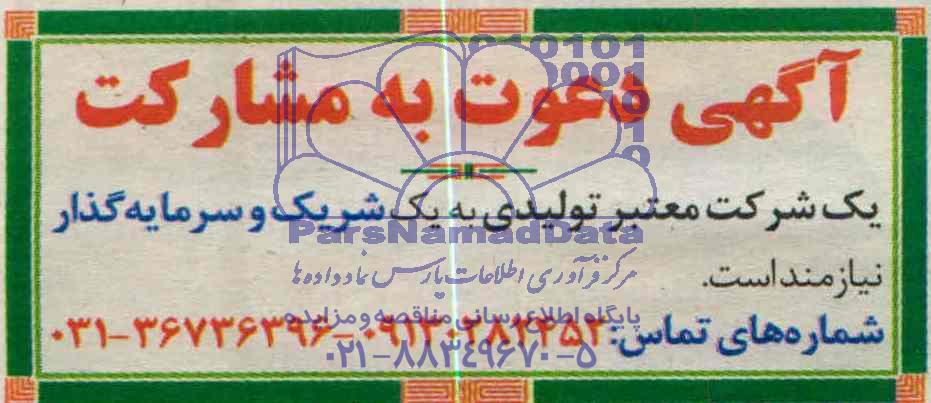 آگهی دعوت به مشارکت
یک شرکت معتبر تولیدی به یک شریک و سرمایه گذار
نیازمند است.
شماره‌های تماس: ۰۳۱-۳۶۷۳۶۳۹۶
ParsNamadData
مرکز فرآوری اطلاعات پارس نماد داده ها
پایگاه اطلاع رسانی مناقصه و مزایده
۰۲۱-۸۸۳۴۹۶۷۰-۵